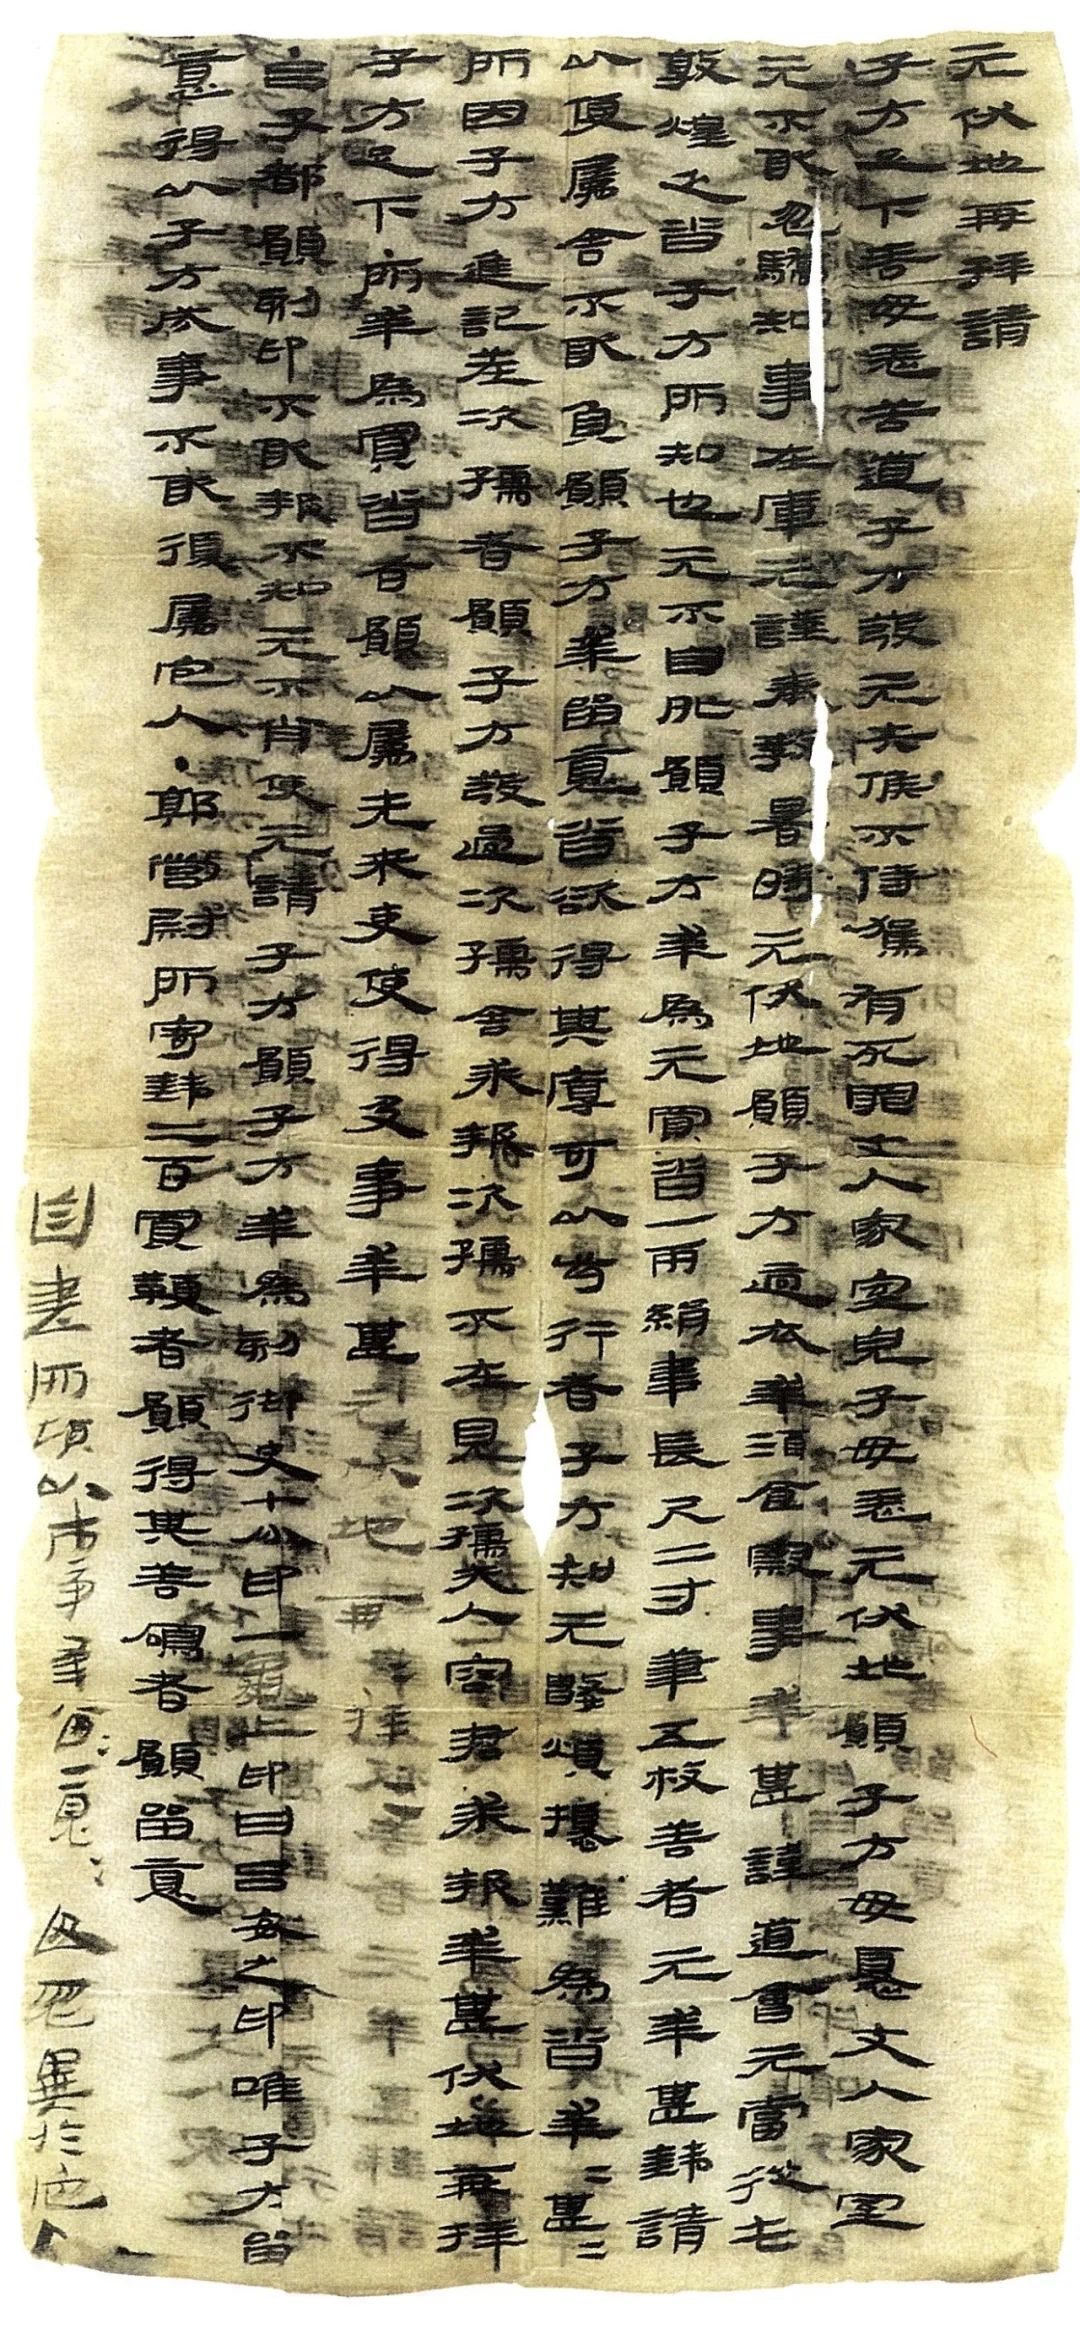 元伏地再拜請
子方足下善毋恙苦道子方發元失候不侍駕有死罪丈人家室兒子毋恙元伏地願子方毋憂丈人家室
元不敢忽驕知事在庫元謹奉教暑時元伏地願子方適衣幸酒食察事幸甚謹道會元當從屯
敦煌乏沓子方所知也元不自外願子方幸為元買沓一兩絹韋長尺二寸筆五枚善者元幸甚錢請
以便屬舍不敢負願子方幸留意沓欲得其厚可以步行者子方知元數煩擾難為沓幸=甚=
所因子方進記差次孺者願子方發過次孺舍求報次孺不在見次孺夫人容君求報幸甚伏地再拜
子方足下·所幸為買沓者願以屬先來吏使得及事幸甚元伏地再拜
·呂子都願刻印不敢報不知元不肖使元請子方願子方幸為刻御史七分印一龜上印曰呂安之印唯子方留
意得以子方成事不敢復屬它人·郭營尉所寄錢二百買鞭者願得其善鳴者願留意
自書所願以市事幸留=意=毋忽異於它人